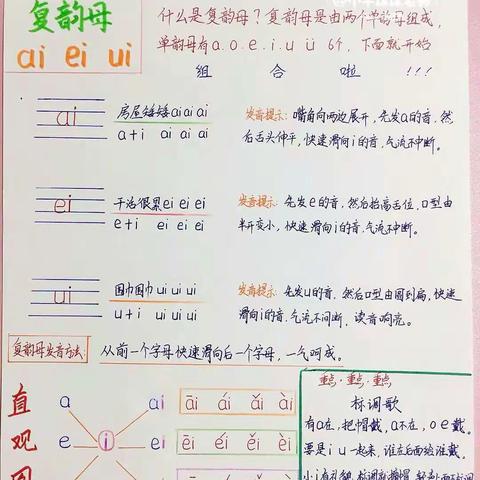 复韵母
ai ei ui
什么是复韵母？复韵母是由两个单韵母组成，
单韵母有a.o.e.i.u ü 6个，下面就开始
组 合 啦 !!!
ai
房屋矮矮ai ai ai
a+i ai ai ai
发音提示：嘴角向两边展开，先发a的音，然
后舌头伸平，快速滑向i的音，气流不中断。
ei
干活很累ei ei ei
e+i ei ei ei
发音提示：先发e的音，然后抬高舌位，口型由
半开变小，快速滑向i的音，气流不中断。
ui
围巾围巾ui ui ui
u+i ui ui ui
发音提示：先发u的音，然后口型由圆到扁，快速
滑向i的音，气流不间断，读音响亮。
复韵母发音方法：从前一个字母快速滑向后一个字母，一气呵成。
直
观
图
a
e
i
ai
ei
āi ái ǎi ài
ēi éi ěi èi
重点·重点·重点
标调歌
有a在，把帽戴，a不在，o e戴。
要是i u一起来，谁在后面给谁戴。
小i有礼貌，标调就摘帽